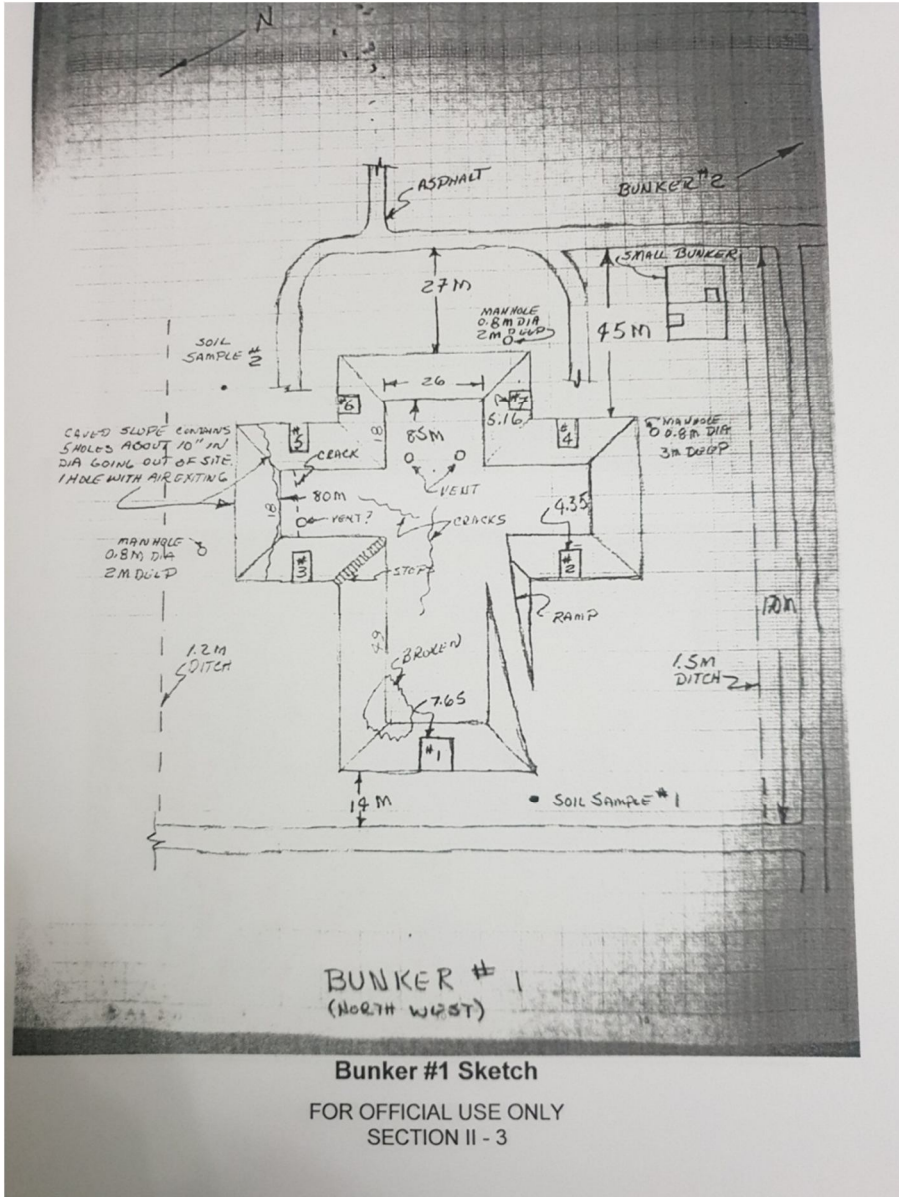 N
ASPHALT
BUNKER #2
SMALL BUNKER
27 M
MANHOLE
0.8M DIA
2M DEEP
45 M
SOIL
SAMPLE #2
26
#6
#7
5.16
MANHOLE
0.8M DIA
3M DEEP
CAVED SLOPE CONTAINS
5 HOLES ABOUT 10" IN
DIA GOING OUT OF SITE
1 HOLE WITH AIR EXITING
#5
18
85M
#4
CRACK
VENT
80M
18
VENT?
CRACKS
4.35
MANHOLE
0.8M DIA
2M DEEP
#3
STEPS
#2
RAMP
170M
1.2M
DITCH
BROKEN
1.5M
DITCH
7.65
#1
14 M
SOIL SAMPLE #1
BUNKER # 1
(NORTH WEST)
Bunker #1 Sketch
FOR OFFICIAL USE ONLY
SECTION II - 3